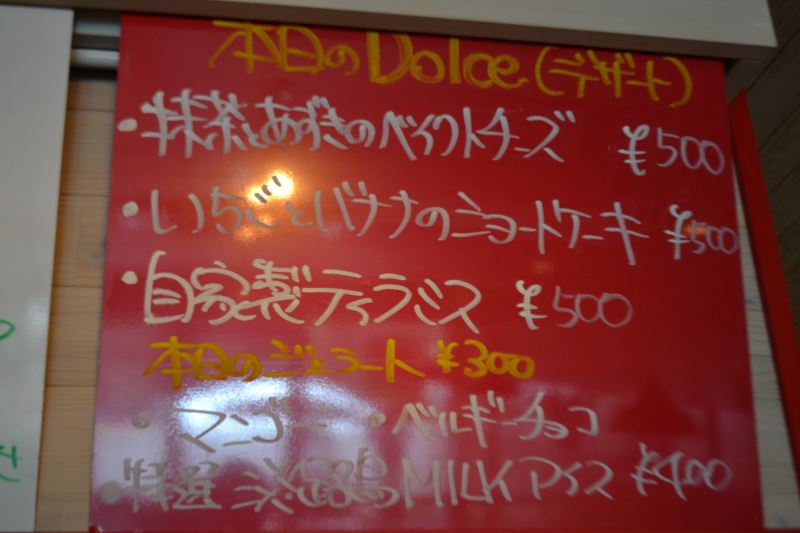 本日のDolce(デザート)
・抹茶とあずきのベイクトチーズ ¥500
・いちごとバナナのショートケーキ ¥500
・自家製ティラミス ¥500
本日のジェラート ¥300
・マンゴー ・ベルギーチョコ
・特選 淡路島MILKアイス ¥400